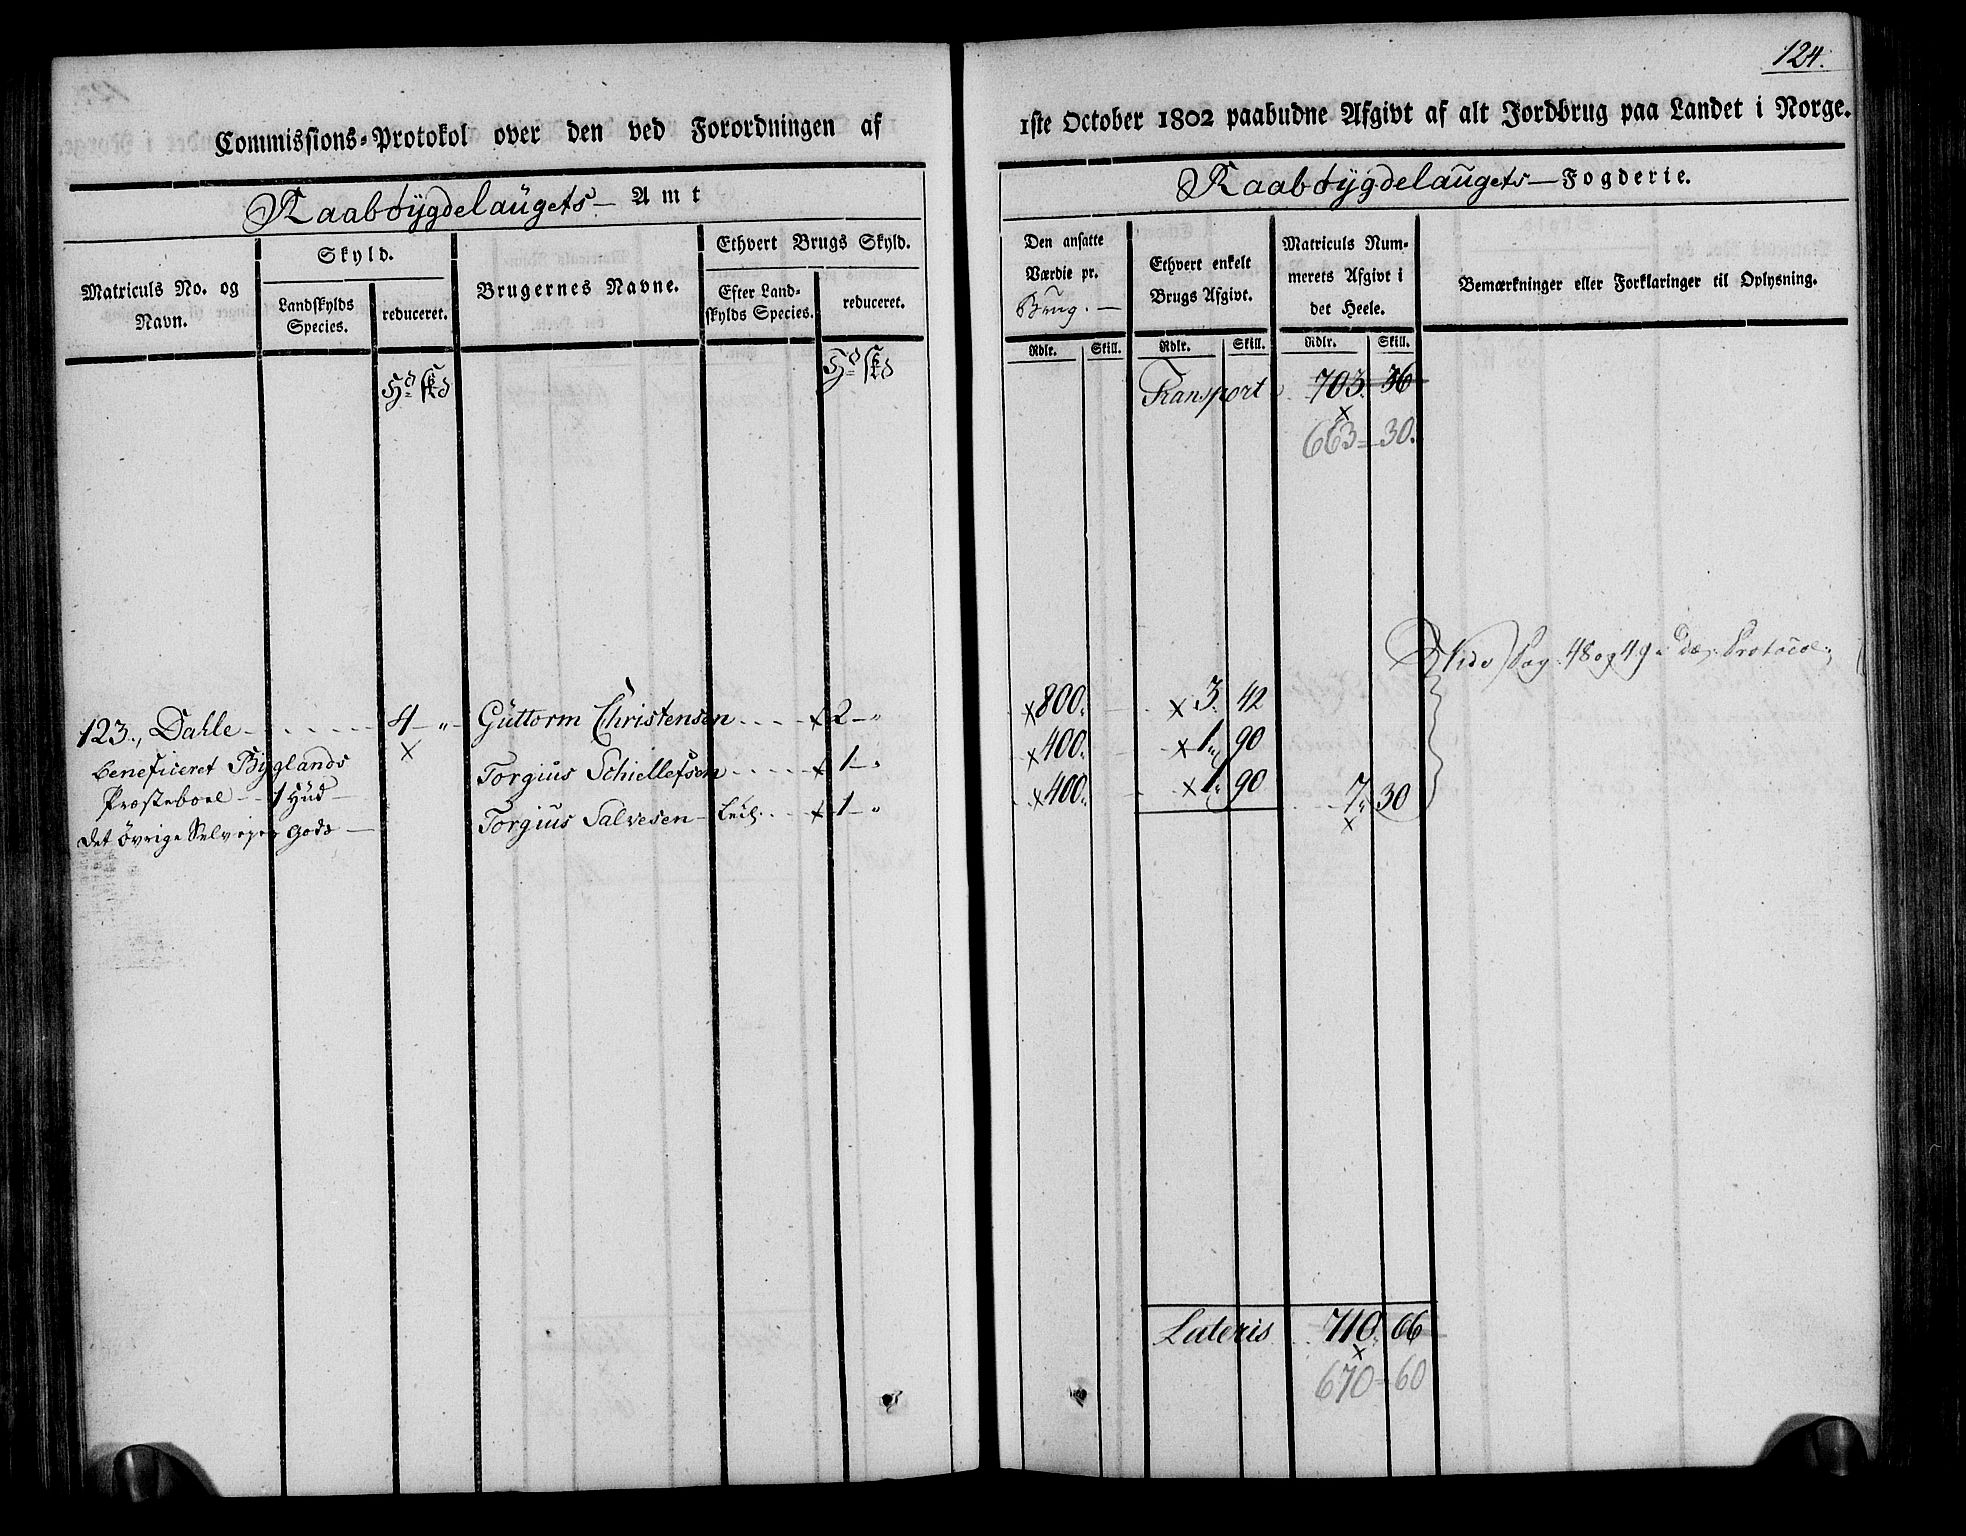 124.
Commissions-Protokol over den ved Forordningen af
1ste October 1802 paabudne Afgivt af alt Jordbrug paa Landet i Norge.
Raabøygdelaugets Amt
Raabøygdelaugets Fogderie.
Matriculs No. og Navn.
Skyld.
Landskylds Species.
reduceret.
Brugernes Navne.
Ethvert Brugs Skyld.
Efter Landskylds Species.
reduceret.
Den ansatte Værdie pr. Brug.
Rdlr. Skill.
Ethvert enkelt Brugs Afgivt.
Rdlr. Skill.
Matriculs Nummerets Afgivt i det Heele.
Rdlr. Skill.
Bemærkninger eller Forklaringer til Oplysning.
Hd skd Hd skd
Transport 703. 36
x
663 - 30.
Vide Pag. 48 og 49 Protocol
123., Dahle 4 - " - Guttorm Christensen x 2 - " x 800. x 3. 42
beneficeret Byglands x Torgius Schiellefsen x 1 - " x 400. x 1. 90
Præsteboel - 1 Hud - Torgius Salvesen x 1 - " x 400. x 1. 90 7. 30
x
det øvrige Selveyer Gods
Lateris 710. 66
x
670 - 60